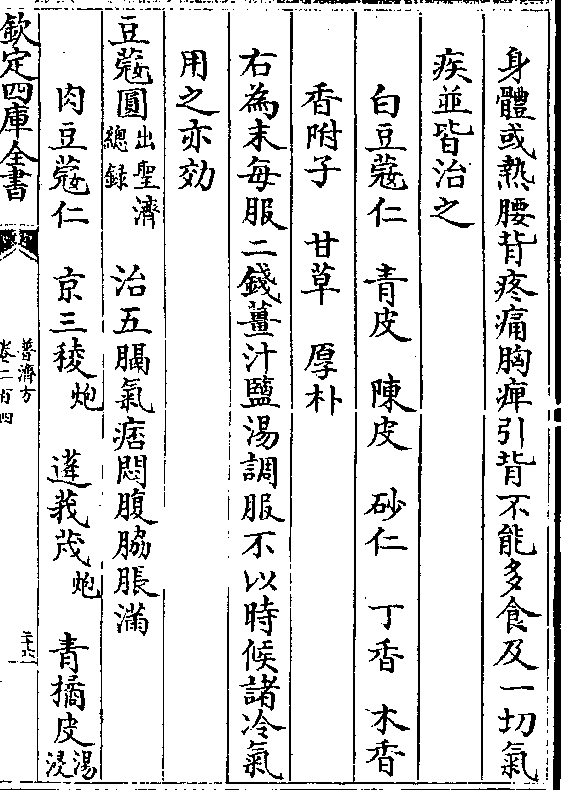 身體或熱腰背疼痛胸痺引背不能多食及一切氣
疾並皆治之
白豆蔻仁　青皮　陳皮　砂仁　丁香　木香
香附子　甘草　厚朴
右為末每服二錢薑汁鹽湯調服不以時候諸冷氣
用之亦効
豆蔻圓出聖濟總録　治五膈氣痞悶腹脇脹滿
肉豆蔻仁　京三稜炮　蓬莪茂炮　青橘皮湯浸
欽定四庫全書
普濟方
卷二百四